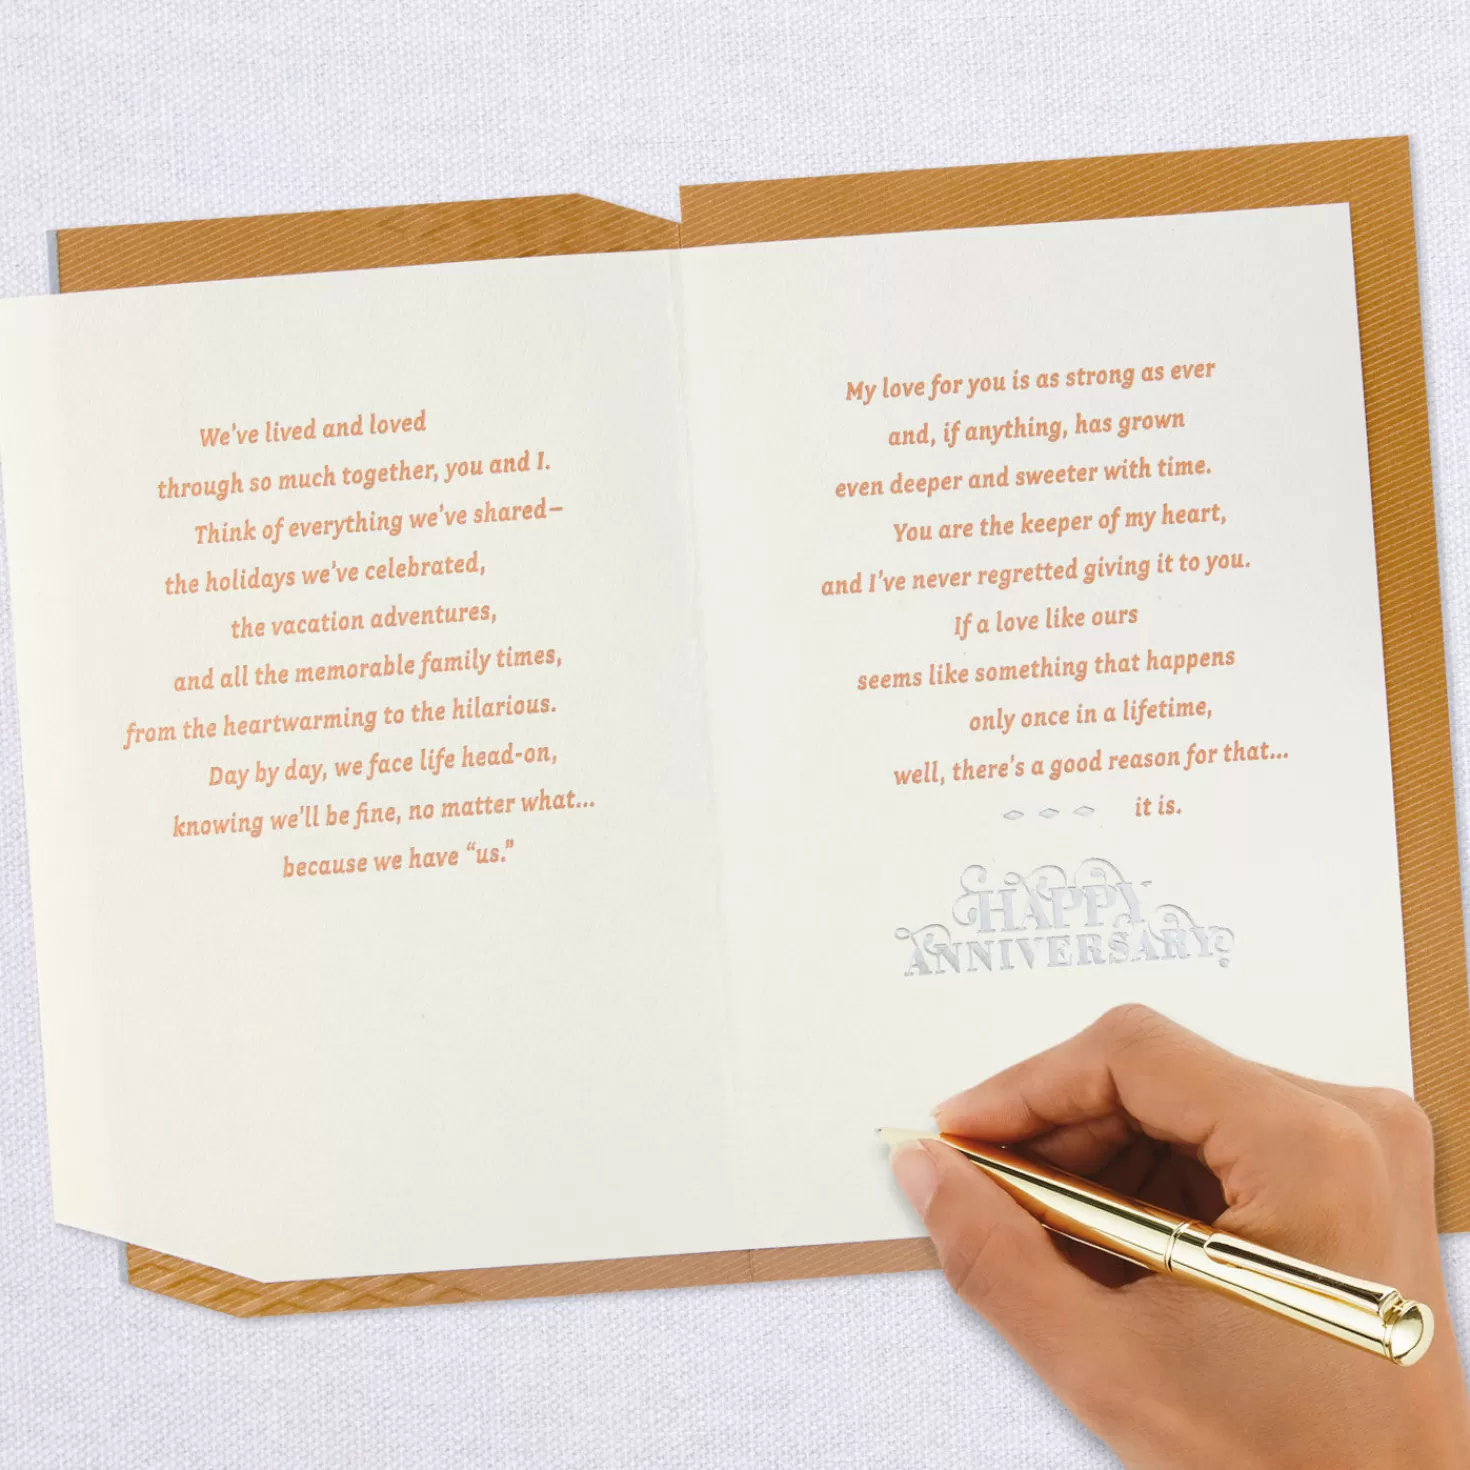 We've lived and loved
through so much together, you and I.
Think of everything we've shared—
the holidays we've celebrated,
the vacation adventures,
and all the memorable family times,
from the heartwarming to the hilarious.
Day by day, we face life head-on,
knowing we'll be fine, no matter what...
because we have “us.”
My love for you is as strong as ever
and, if anything, has grown
even deeper and sweeter with time.
You are the keeper of my heart,
and I've never regretted giving it to you.
If a love like ours
seems like something that happens
only once in a lifetime,
well, there's a good reason for that...
it is.
HAPPY
ANNIVERSARY